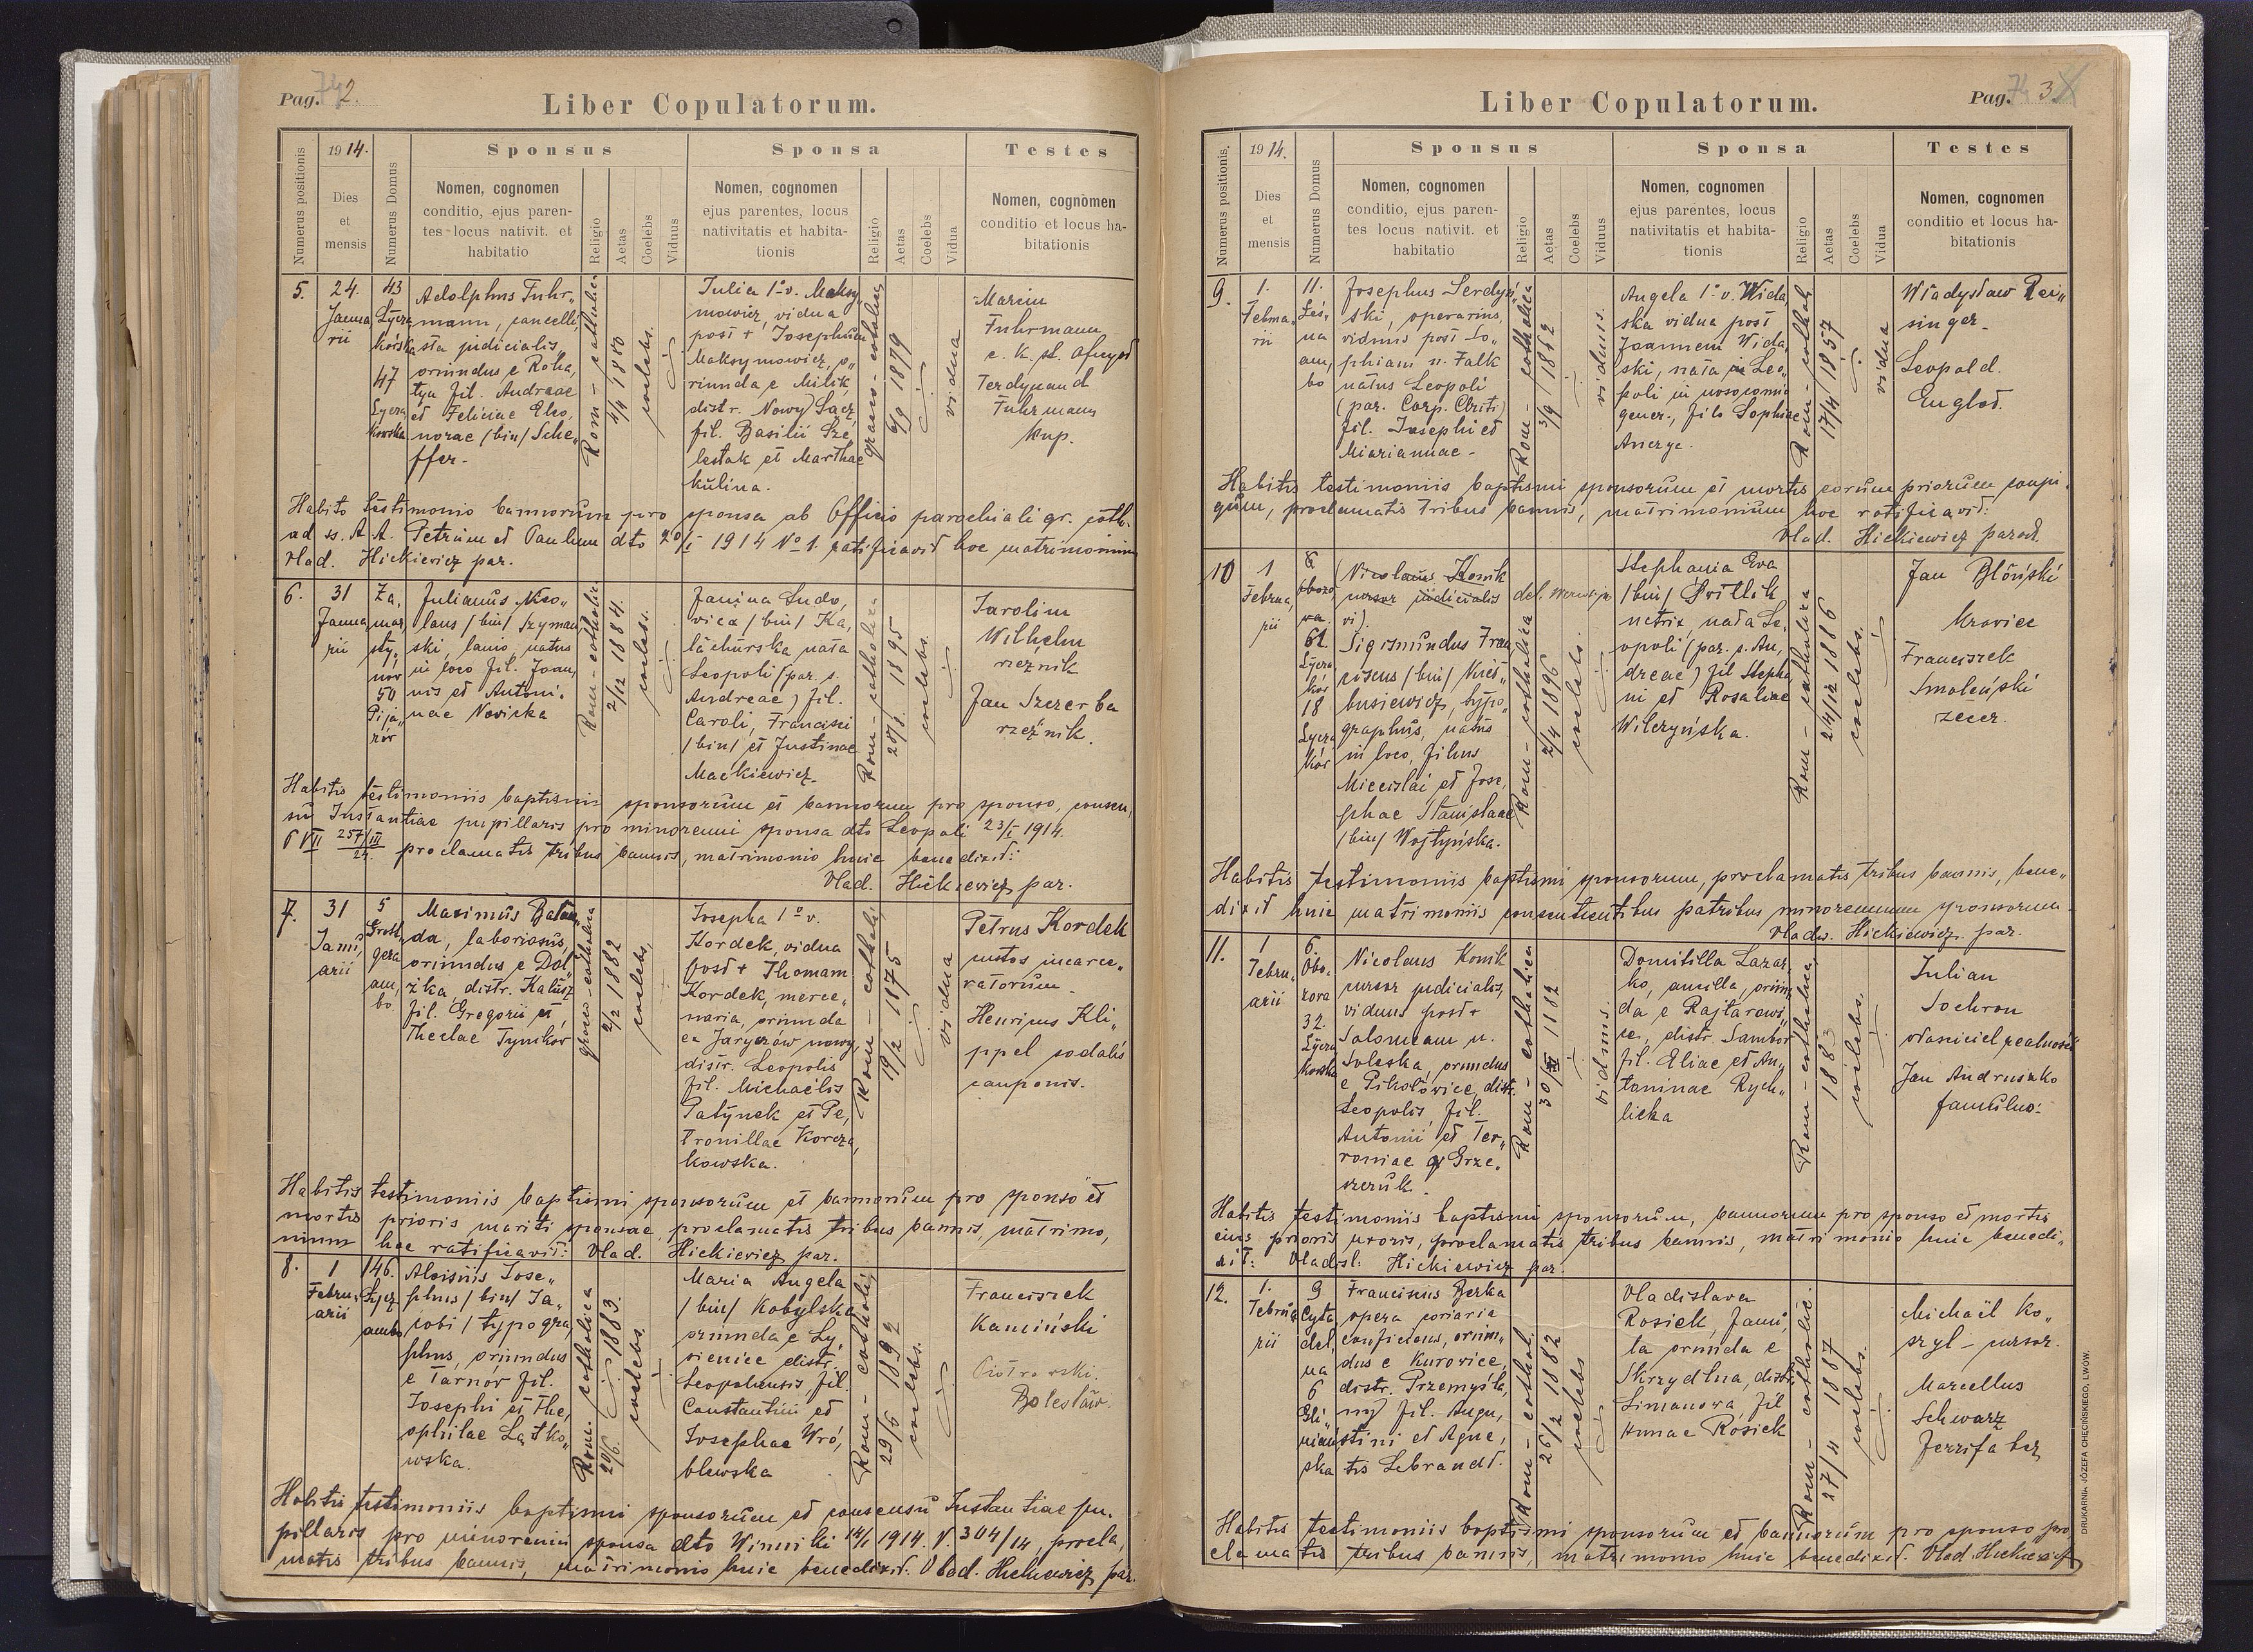 Pag. 2.
Liber Copulatorum.
Numerus positionis
1914.
Dies
et
mensis
Numerus Domus
Sponsus
Nomen, cognomen
conditio, ejus paren-
tes locus nativit. et
habitatio
Religio
Aetas
Coelebs
Viduus
Sponsa
Nomen, cognomen
ejus parentes, locus
nativitatis et habita-
tionis
Religio
Aetas
Coelebs
Vidua
Testes
Nomen, cognomen
conditio et locus ha-
bitationis
5.
24.
Janua
rii
43
Łycza
kowska
47
Łycza
kowska
Adolphus Fuhr„
mann, cancelli,
sta judicialis,
oriundus e Roha,
tyn fil. Andreae
et Feliciae Eleo,
norae /bin/ Sche„
ffer.
Rom - catholica
4/4 1880
coelebs.
Julia 1º v. Maksy„
mowicz, vidua
post + Josephum
Maksymowicz, o„
riunda e Milik,
distr. Nowy Sącz,
fil. Basilii Sze
lestak et Marthae
Kulina.
graeco - cathol
6/9 1879
vidua
Marcin
Fuhrmann
c. k. st. oficyał
Ferdynand
Fuhrmann
kup.
Habito testimonio bannorum pro sponsa ab Officio parochiali gr. cath.
ad ss. A. A. Petrum et Paulum dto 20/I 1914 Nº 1. ratificavit hoc matrimonium
Vlad. Hickiewicz par.
6.
31
Janua
rii
Za,
mar,
sty„
nów
50
Pija„
rów
Julianus Nico„
laus /bin/ Szyman
ski, lanio, natus
in loco fil. Joan,
nis et Antoni„
nae Novicka
Rom - catholica
2/12 1884.
coelebs.
Janina Ludo,
vica /bin/ Ka,
łachurska nata
Leopoli (par. s.
Andreae) fil.
Caroli, Francisci
/bin/ et Justinae
Maćkiewicz.
Rom - catholica
1895
coelebs.
Karolim
Wilhelm
rzeźnik
Jan Szczerba
rzeźnik.
Habitis testimoniis baptismi sponsorum et bannorum pro sponso, consen,
su Instantiae pupillaris pro minorenni sponsa dto Leopoli 23/I 1914.
proclamatis tribus bannis, matrimonio huic benedixit:
Vlad. Hickiewicz par.
7.
31
Janu,
arii
5
Grott
gera
am,
bo.
Maximus Bałan
da, laboriosus,
oriundus e Doł„
żka, distr. Kałusz
fil. Gregorii et
Theclae Tymków
graeco - catholica
2/2 1882
coelebs,
Josepha 1º v.
Kordek, vidua
post + Thomam
Kordek, merce„
naria, oriunda
ex Jaryczów nowy,
distr. Leopolis
fil. Michaelis
Patynek et Pe,
tronillae Korcza,
kowska.
Rom - cathol,
19/2 1875
vidua
Petrus Kordek
custos incarce„
ratorum.
Henricus Kli„
ppel sodalis
cauponis.
Habitis testimoniis baptismi sponsorum et bannorum pro sponso et
mortis prioris mariti sponsae, proclamatis tribus bannis, matrimo,
nium hoc ratificavit: Vlad. Hickiewicz par.
8.
1
Febru,
arii
146.
Łycz
ambo
Aloisius Jose„
phus /bin/ Ja„
cobi / typogra,
phus, oriundus
e Tarnów fil.
Josephi et The,
ophilae Łątko„
wska.
Rom. catholica
20/6. 1883.
coelebs.
Maria Angela
/bin/ Kobylska
oriunda e Ły„
sienice distr.
Leopoliensis, fil.
Constantini et
Josephae Wró„
blewska
Rom - catholic
29/6 1892
coelebs.
Franciszek
Kamiński
Piotrowski.
Bolesław.
Habitis testimoniis baptismi sponsorum et consensu Instantiae pu„
pillaris pro minorenni sponsa dto Winniki 14/1 1914. V. 304/14, procla,
matis tribus bannis, matrimonio huic benedixit. Vlad. Hickiewicz par.
Liber Copulatorum.
Pag. 3
Numerus positionis.
1914.
Dies
et
mensis
Numerus Domus
Sponsus
Nomen, cognomen
conditio, ejus paren-
tes locus nativit. et
habitatio
Religio
Aetas
Coelebs
Viduus
Sponsa
Nomen, cognomen
ejus parentes, locus
nativitatis et habita-
tionis
Religio
Aetas
Coelebs
Vidua
Testes
Nomen, cognomen
conditio et locus ha-
bitationis
9.
1.
Februa„
rii
11.
Leś„
na
am,
bo
Josephus Serdyń
ski, operarius,
viduus post So„
phiam n. Falk
natus Leopoli
(par. Corp. Christi)
fil. Josephi et
Mariannae -
Rom - catholica
3/9 1842
viduus.
Angela 1º v. Wida,
ska vidua post
Joannem Wida,
ski, nata in Leo„
poli in nosocomio
gener., fil. Sophiae
Ancyge.
Rom - cathol
17/4 1857
vidua
Władysław Rei„
singer.
Leopold.
Englot.
Habitis testimoniis baptismi sponsorum et mortis eorum priorum conju„
gum, proclamatis tribus bannis, matrimonium hoc ratificavit:
Vlad. Hickiewicz paroch.
10
1
Februa,
rii
6
Oboro
wa
61
Łycza
ków
18
Łycza
ków
(Nicolaus Konik
cursor judicialis
vi).
Sigismundus Fran
ciscus /bin/ Knieś„
busiewicz, typo„
graphus, natus
in loco, filius
Miecislai et Jose,
phae Stanislaae
/bin/ Wojtyńska.
Rom - catholica
2/4 1896
coelebs.
Stephania Eva
/bin/ Switlik
netrix, nata Le„
opoli (par. s. An,
dreae) fil. Stepha
ni et Rosaliae
Wilczyńska.
Rom - catholica
24/12 1886
coelebs.
Jan Błoński
krawiec
Franciszek
Smoleński
zecer.
Habitis testimoniis baptismi sponsorum, proclamatis tribus bannis, bene„
dixit huic matrimonio consentientibus patribus minorennum sponsorum
Vladis. Hickiewicz par.
11.
1
Febru„
arii
6.
Obo„
rowa
32.
Łycza
kowska
Nicolaus Konik
cursor judicialis,
viduus post +
Salomeam n.
Soleska, oriundus
e Pikołowice, distr.
Leopolis, fil.
Antonii et Fer„
roniae Grze„
szczuk.
Rom - catholica
viduus.
Domitilla Lazar„
ko, ancilla, oriun,
da e Rajtarowi„
ce, distr. Sambor
fil. Eliae et An„
toninae Rych„
licka
Rom - catholica
1883
coelebs.
Julian
Sochron
właściciel realności
Jan Andruszko
famulus.
Habitis testimoniis baptismi sponsorum, bannorum pro sponso et mortis
eius prioris uxoris, proclamatis tribus bannis, matrimonio huic benedi„
xit: Vladisl: Hickiewicz par.
12.
1.
Februa
rii
9
Cyta,
del,
na
6
Franciscus Berka
opera coriaria
conficiens, oriun„
dus e Kurowice,
distr. Przemyśla,
ny fil. Augu,
stini et Agne,
tis Lebrandt.
Rom - cathol.
26/2 1882
coelebs
Vladislava
Rosiek, famu,
la oriunda e
Skrzydlna, distr.
Limanowa, fil
Annae Rosiek
Rom - catholic.
27/4 1887
coelebs.
Michaël Ko„
szyl - cursor.
Marcellus
Schwarz
Habitis testimoniis baptismi sponsorum et bannorum pro sponso pro
clamatis tribus bannis, matrimonio huic benedixit. Vlad. Hickiewicz
DRUKARNIA JÓZEFA CHĘCIŃSKIEGO, LWÓW.